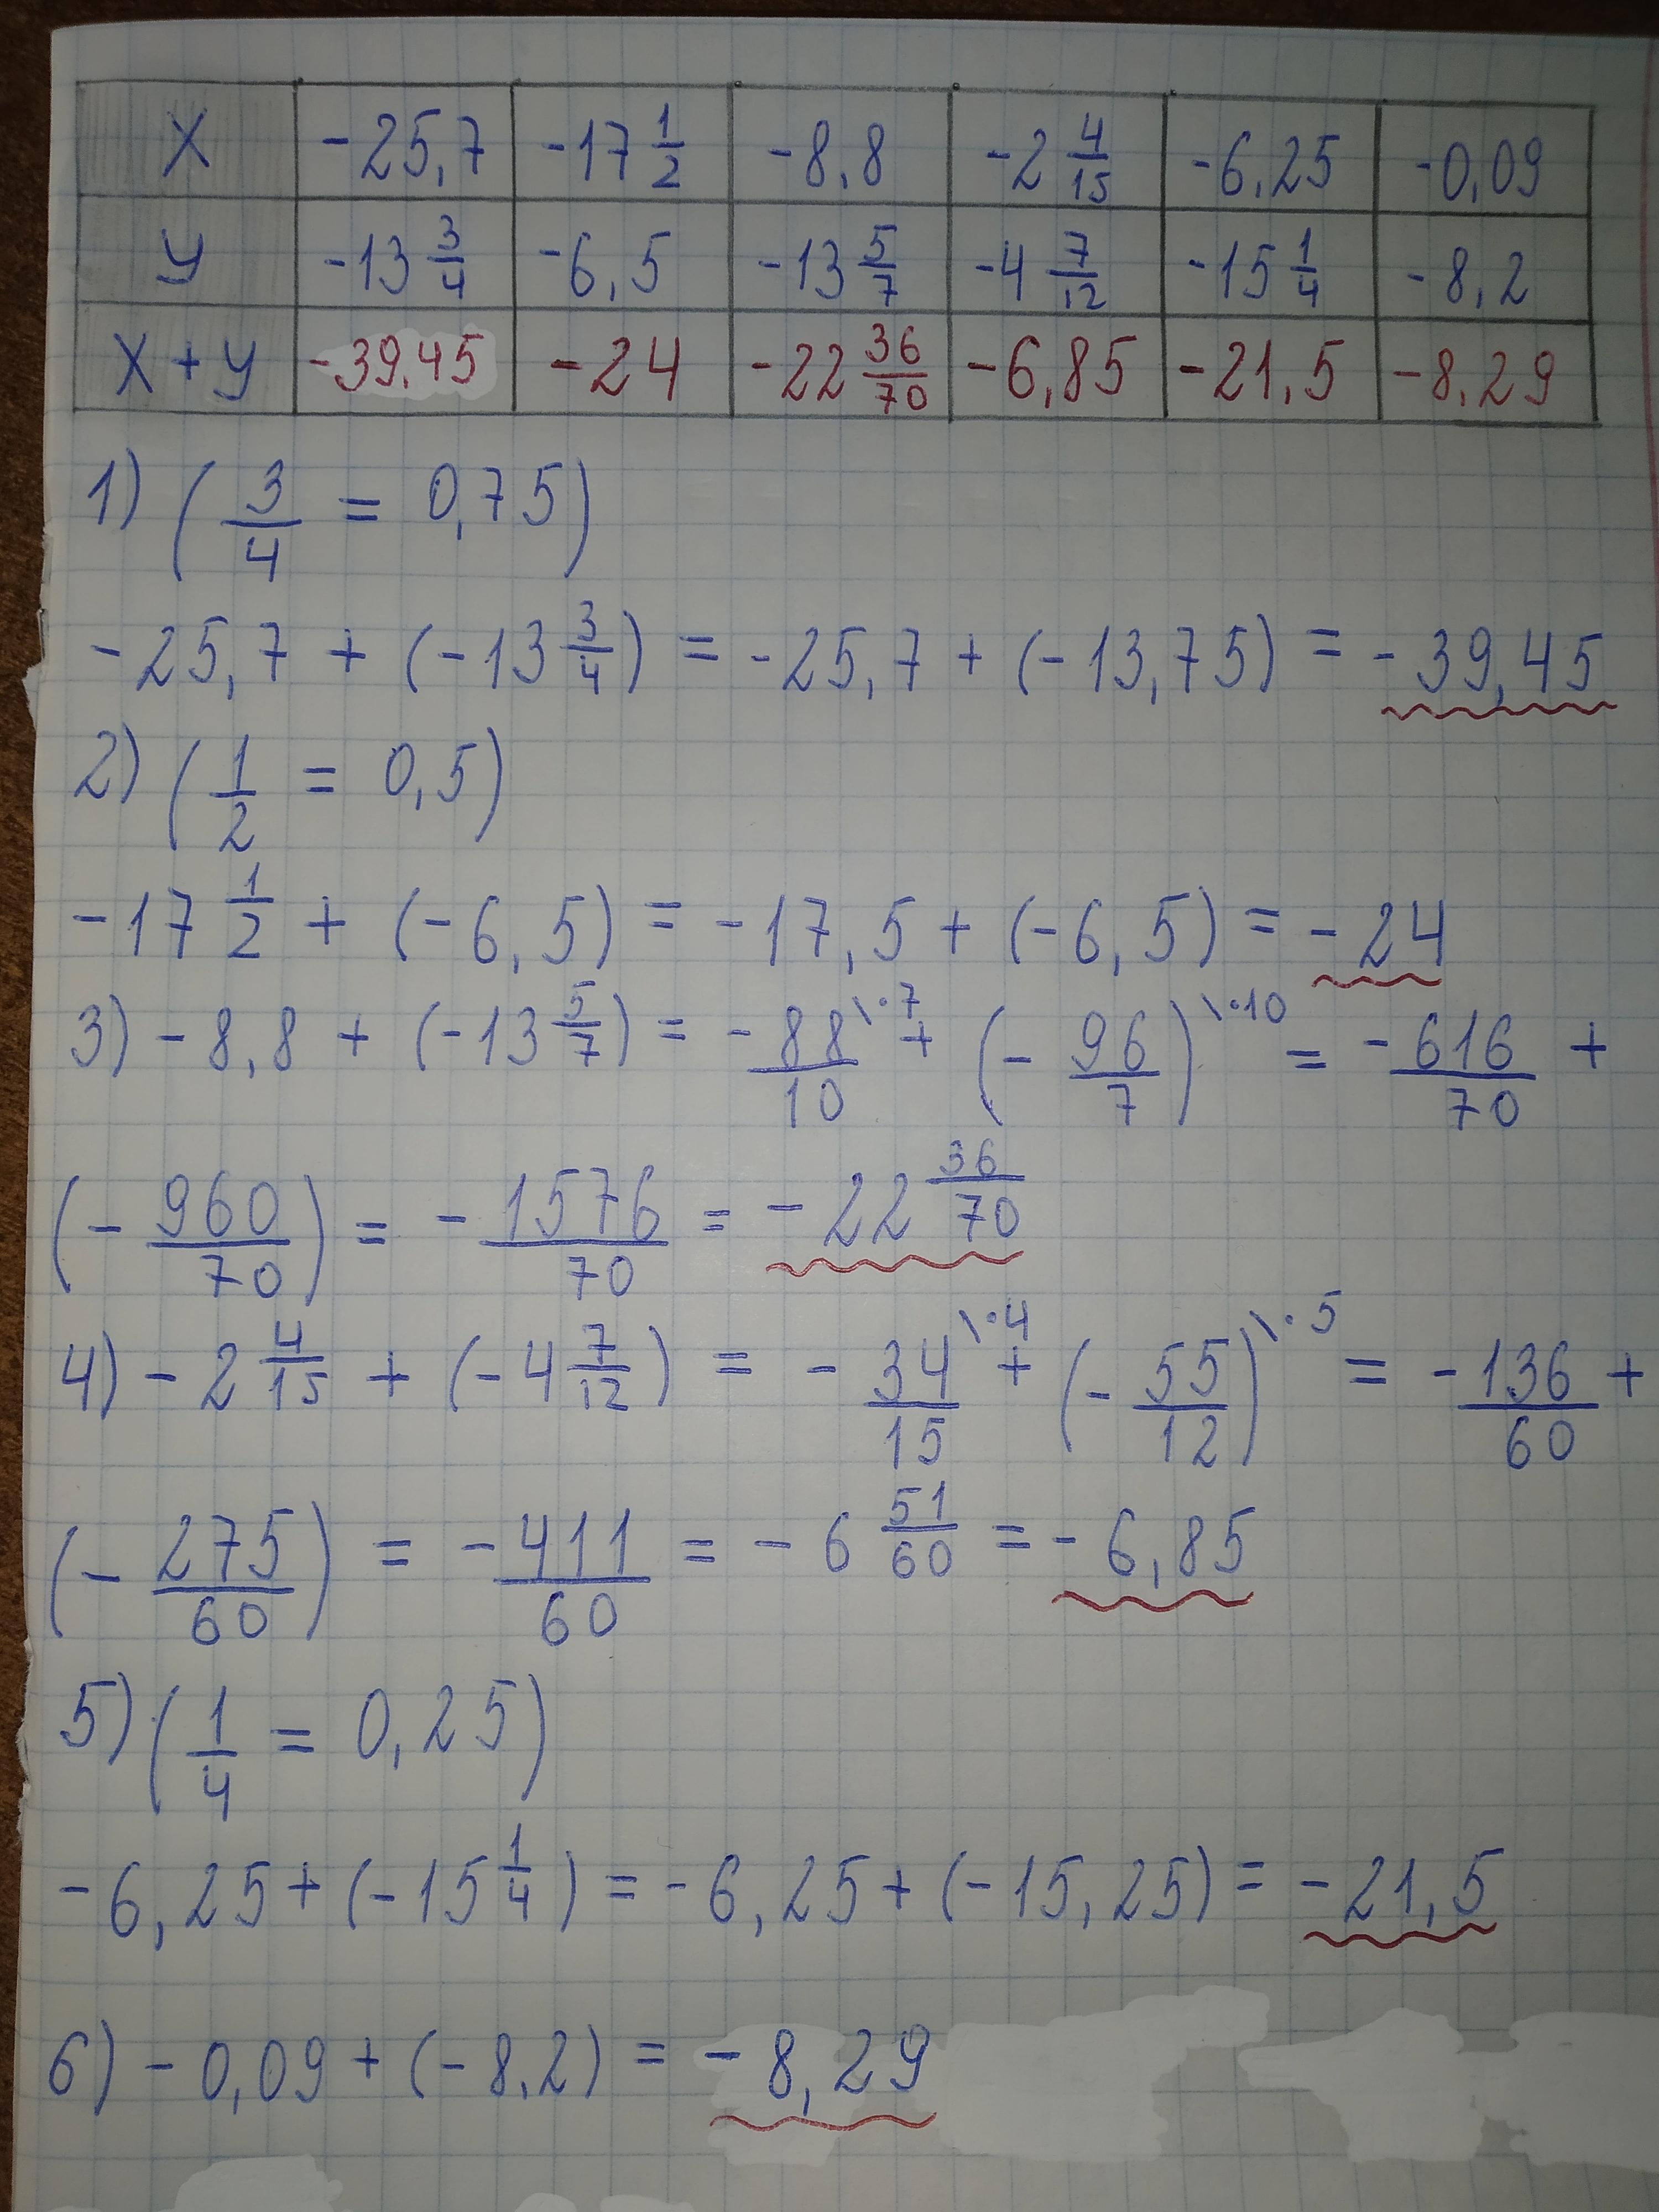 X -25,7 -17 1/2 -8,8 -2 4/15 -6,25 -0,09
y -13 3/4 -6,5 -13 5/7 -4 7/12 -15 1/4 -8,2
X+y -39,45 -24 -22 36/70 -6,85 -21,5 -8,29
1) (3/4 = 0,75)
-25,7 + (-13 3/4) = -25,7 + (-13,75) = -39,45
2) (1/2 = 0,5)
-17 1/2 + (-6,5) = -17,5 + (-6,5) = -24
3) -8,8 + (-13 5/7) = -88/10 \·7 + (-96/7) \·10 = -616/70 +
(-960/70) = -1576/70 = -22 36/70
4) -2 4/15 + (-4 7/12) = -34/15 \·4 + (-55/12) \·5 = -136/60 +
(-275/60) = -411/60 = -6 51/60 = -6,85
5) (1/4 = 0,25)
-6,25 + (-15 1/4) = -6,25 + (-15,25) = -21,5
6) -0,09 + (-8,2) = -8,29